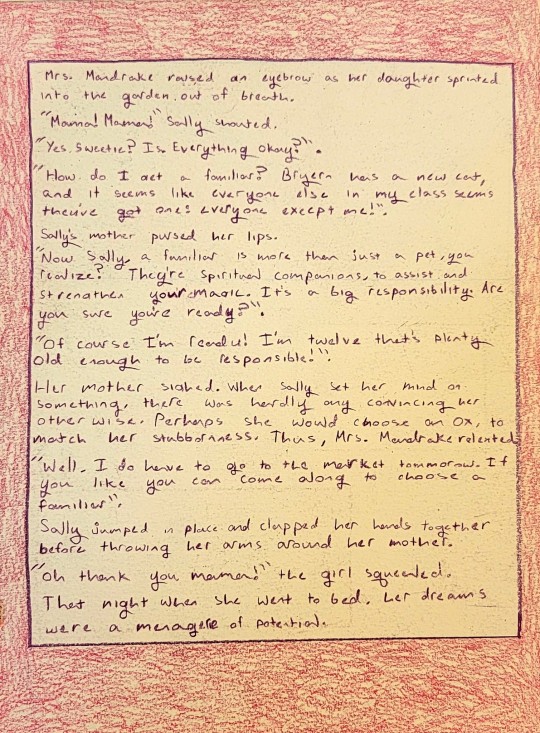 Mrs. Mandrake raised an eyebrow as her daughter sprinted
into the garden, out of breath.
"Mama! Mama!" Sally shouted.
"Yes, Sweetie? Is Everything okay?".
"How do I get a familiar? Bryern has a new cat,
and it seems like everyone else in my class seems
theuive got one! Everyone except me!".
Sally's mother pursed her lips.
"Now Sally, a familiar is more than just a pet, you
realize? They're spiritual companions, to assist and
strengthen your magic. It's a big responsibility. Are
you sure you're ready?".
"Of course I'm ready! I'm twelve that's plenty
old enough to be responsible!".
Her mother sighed. When Sally set her mind on
something, there was hardly any convincing her
otherwise. Perhaps she would choose an Ox, to
match her stubbornness. Thus, Mrs. Mandrake relented
"Well, I do have to go to the market tommorow. If
you like you can come along to choose a
familiar".
Sally jumped in place and clapped her hands together
before throwing her arms around her mother.
"Oh thank you mama!" the girl squealed.
That night when she went to bed, her dreams
were a menagere of potential.